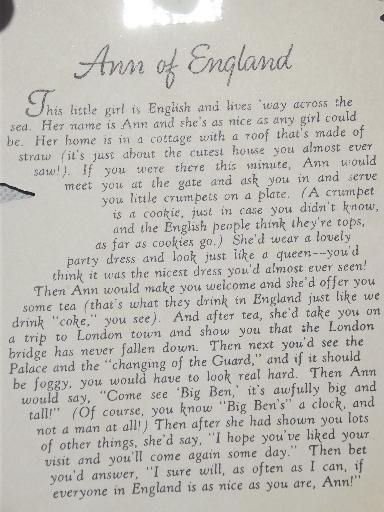 Ann of England
This little girl is English and lives 'way across the
sea. Her name is Ann and she's as nice as any girl could
be. Her home is in a cottage with a roof that's made of
straw (it's just about the cutest house you almost ever
saw!). If you were there this minute, Ann would
meet you at the gate and ask you in and serve
you little crumpets on a plate. (A crumpet
is a cookie, just in case you didn't know,
and the English people think they're tops,
as far as cookies go.) She'd wear a lovely
party dress and look just like a queen--you'd
think it was the nicest dress you'd almost ever seen!
Then Ann would make you welcome and she'd offer you
some tea (that's what they drink in England just like we
drink "coke," you see). And after tea, she'd take you on
a trip to London town and show you that the London
bridge has never fallen down. Then next you'd see the
Palace and the "changing of the Guard," and if it should
be foggy, you would have to look real hard. Then Ann
would say, "Come see 'Big Ben,' it's awfully big and
tall!" (Of course, you know "Big Ben's" a clock, and
not a man at all!) Then after she had shown you lots
of other things, she'd say, "I hope you've liked your
visit and you'll come again some day." Then bet
you'd answer, "I sure will, as often as I can, if
everyone in England is as nice as you are, Ann!"